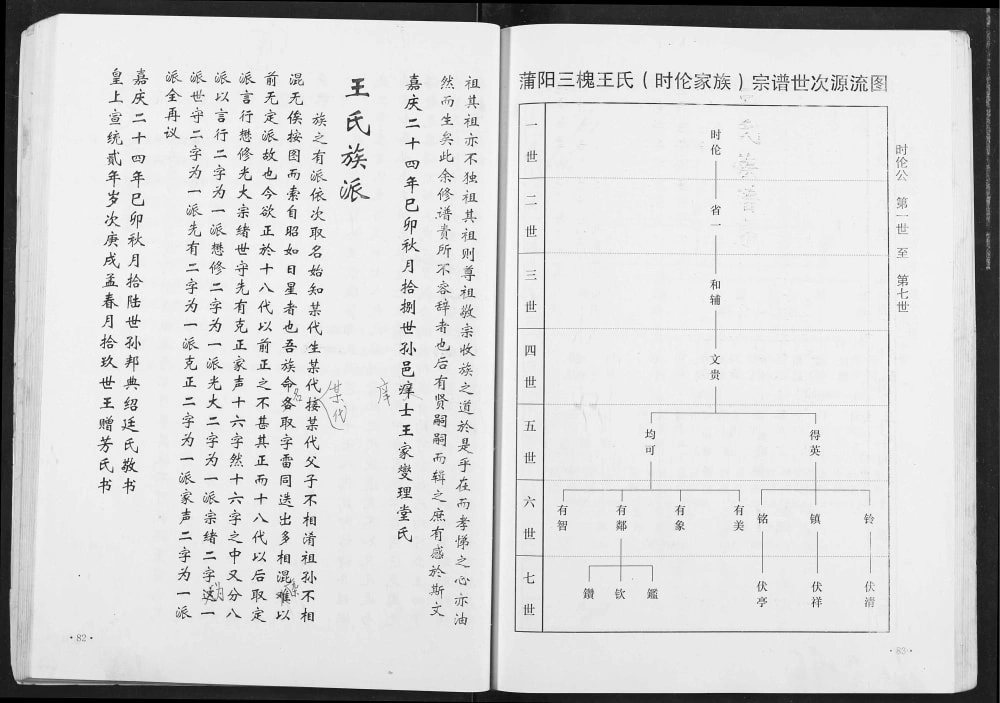 祖其祖亦不独祖其祖则尊祖敬宗收族之道於是乎在而孝悌之心亦油
然而生矣此余修谱责所不容辞者也后有贤嗣嗣而辑之庶有感於斯文
嘉庆二十四年巳卯秋月拾捌世孙邑庠士王家燮理堂氏
庠
王氏族派
族之有派依次取名始知某代生某代接某代父子不相淆祖孙不相
某代
混无俟按图而索自昭如日星者也吾族命名取字雷同迭出多相混难以
前无定派故也今欲正於十八代以前正之不甚其正而十八代以后取定
派言言行懋修光大宗绪世守先有克正家声十六字然十六字之中又分八
派以言行二字为一派懋修二字为一派光大二字为一派宗绪二字为一
派世守二字为一派先有二字为一派克正二字为一派家声二字为一派
派全再议
嘉庆二十四年巳卯秋月拾陆世孙邦典绍廷氏敬书
皇上宣统贰年岁次庚戌孟春月拾玖世王赠芳氏书
·82·
蒲阳三槐王氏（时伦家族）宗谱世次源流图
时伦公 第一世 至 第七世
一世
时伦
二世
省一
三世
和辅
四世
文贵
五世
均可
得英
六世
有智
有鄰
有象
有美
铭
镇
铃
七世
鑽
钦
鑑
伏亭
伏祥
伏清
·83·